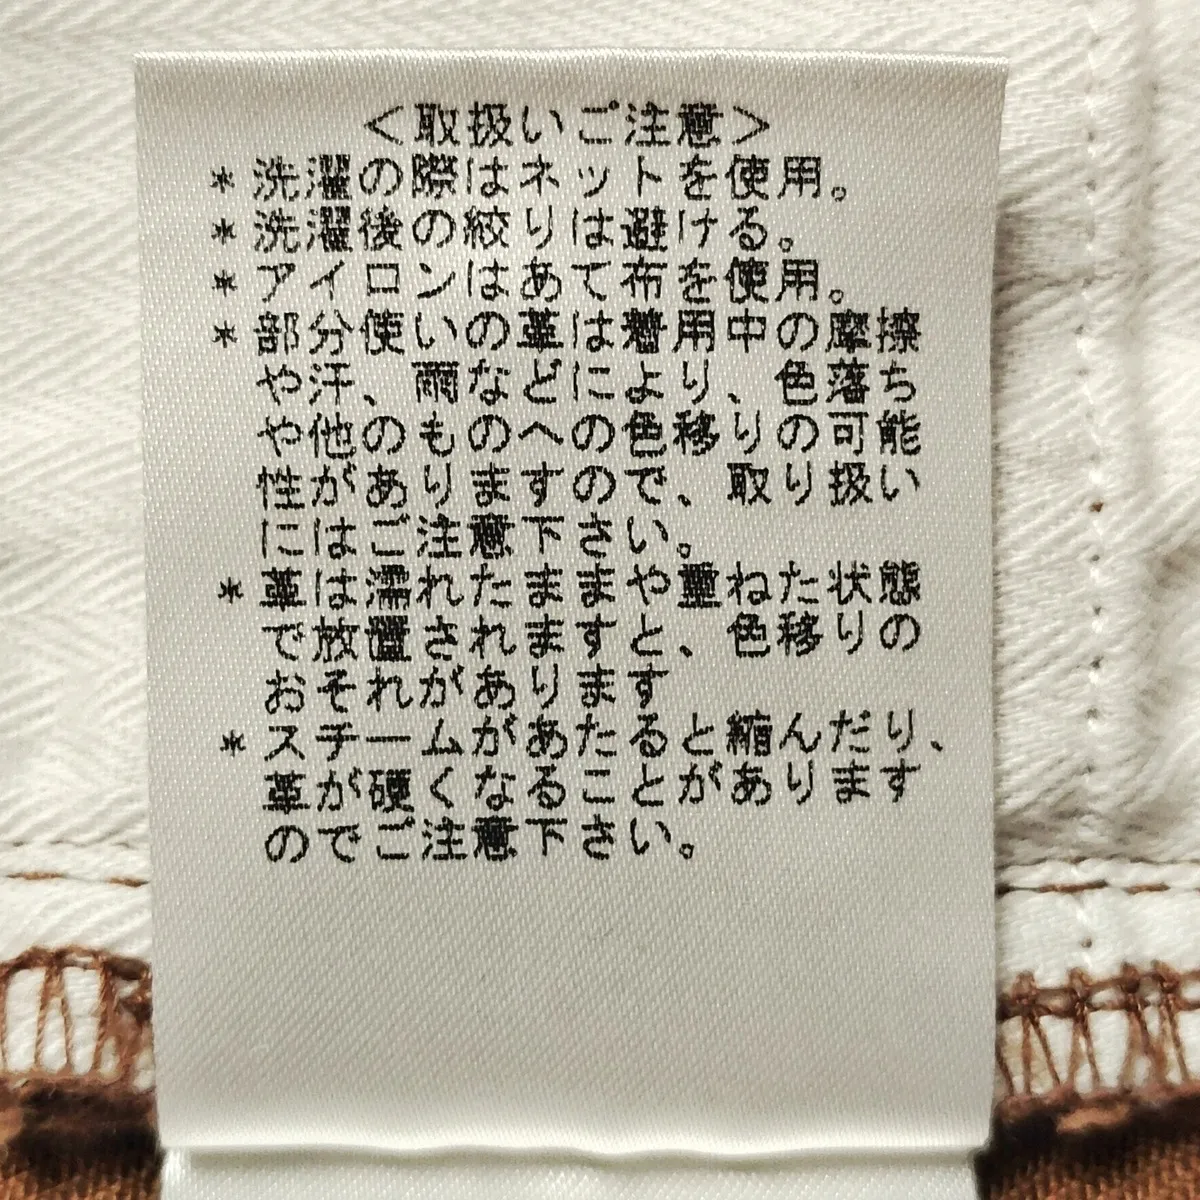 <取扱いご注意>
* 洗濯の際はネットを使用。
* 洗濯後の絞りは避ける。
* アイロンはあて布を使用。
* 部分使いの革は着用中の摩擦
や汗、雨などにより、色落ち
や他のものへの色移りの可能
性がありますので、取り扱い
にはご注意下さい。
* 革は濡れたままや重ねた状態
で放置されますと、色移りの
おそれがあります
* スチームがあたると縮んだり、
革が硬くなることがあります
のでご注意下さい。